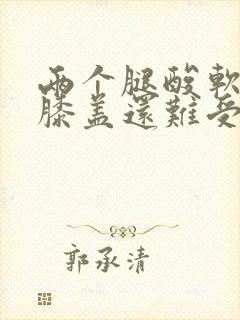 两个腿酸軟
膝盖還難受
郭承清